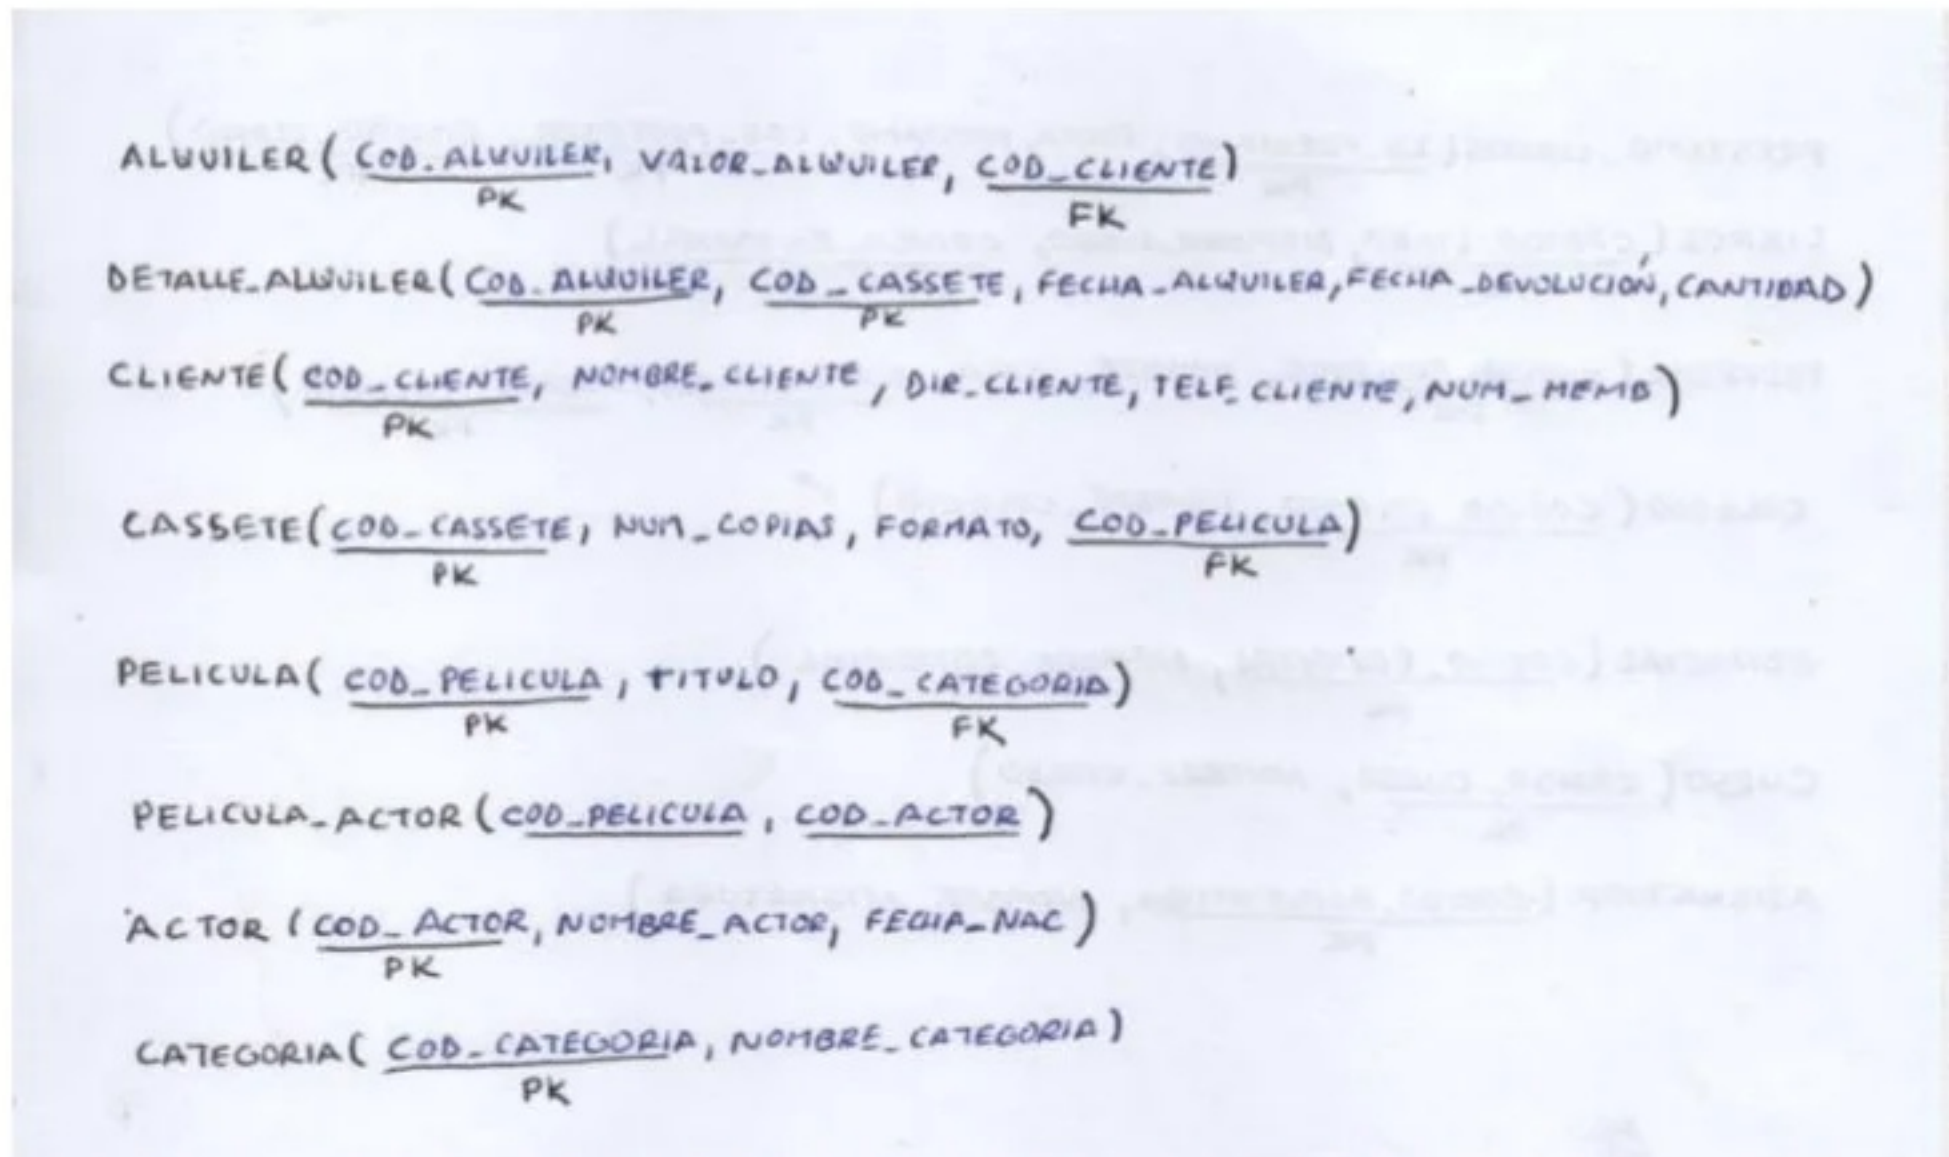 ALQUILER ( COD_ALQUILER, VALOR_ALQUILER, COD_CLIENTE)
PK FK
DETALLE_ALQUILER ( COD_ALQUILER, COD_CASSETE, FECHA_ALQUILER, FECHA_DEVOLUCIÓN, CANTIDAD )
PK PK
CLIENTE ( COD_CLIENTE, NOMBRE_CLIENTE, DIR_CLIENTE, TELF_CLIENTE, NUM_MEMB)
PK
CASSETE (COD_CASSETE, NUM_COPIAS, FORMATO, COD_PELICULA)
PK FK
PELICULA ( COD_PELICULA, TITULO, COD_CATEGORIA)
PK FK
PELICULA_ACTOR ( COD_PELICULA, COD_ACTOR )
ACTOR ( COD_ACTOR, NOMBRE_ACTOR, FECHA_NAC )
PK
CATEGORIA ( COD_CATEGORIA, NOMBRE_CATEGORIA )
PK